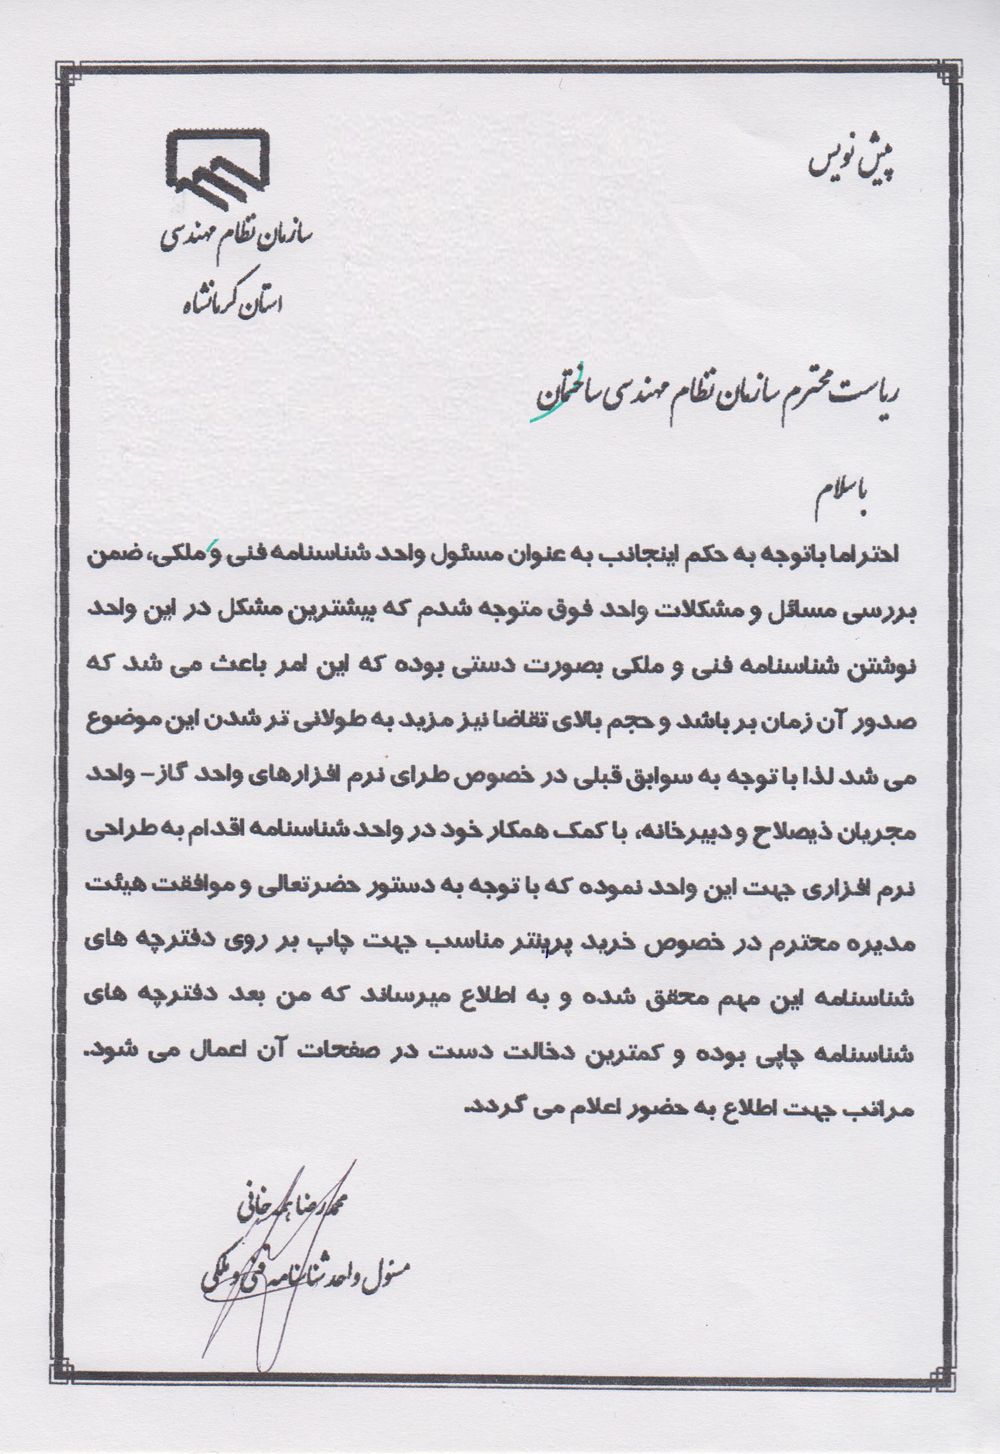 پیش نویس
سازمان نظام مهندسی
استان کرمانشاه
ریاست محترم سازمان نظام مهندسی ساختمان
با سلام
احتراما باتوجه به حکم اینجانب به عنوان مسئول واحد شناسنامه فنی و ملکی، ضمن
بررسی مسائل و مشکلات واحد فوق متوجه شدم که بیشترین مشکل در این واحد
نوشتن شناسنامه فنی و ملکی بصورت دستی بوده که این امر باعث می شد که
صدور آن زمان بر باشد و حجم بالای تقاضا نیز مزید به طولانی تر شدن این موضوع
می شد لذا با توجه به سوابق قبلی در خصوص طرای نرم افزارهای واحد گاز- واحد
مجریان ذیصلاح و دبیرخانه، با کمک همکار خود در واحد شناسنامه اقدام به طراحی
نرم افزاری جهت این واحد نموده که با توجه به دستور حضرتعالی و موافقت هیئت
مدیره محترم در خصوص خرید پرینتر مناسب جهت چاپ بر روی دفترچه های
شناسنامه این مهم محقق شده و به اطلاع میرساند که من بعد دفترچه های
شناسنامه چاپی بوده و کمترین دخالت دست در صفحات آن اعمال می شود.
مراتب جهت اطلاع به حضور اعلام می گردد.
محمدرضا همه خانی
مسئول واحد شناسنامه فنی و ملکی